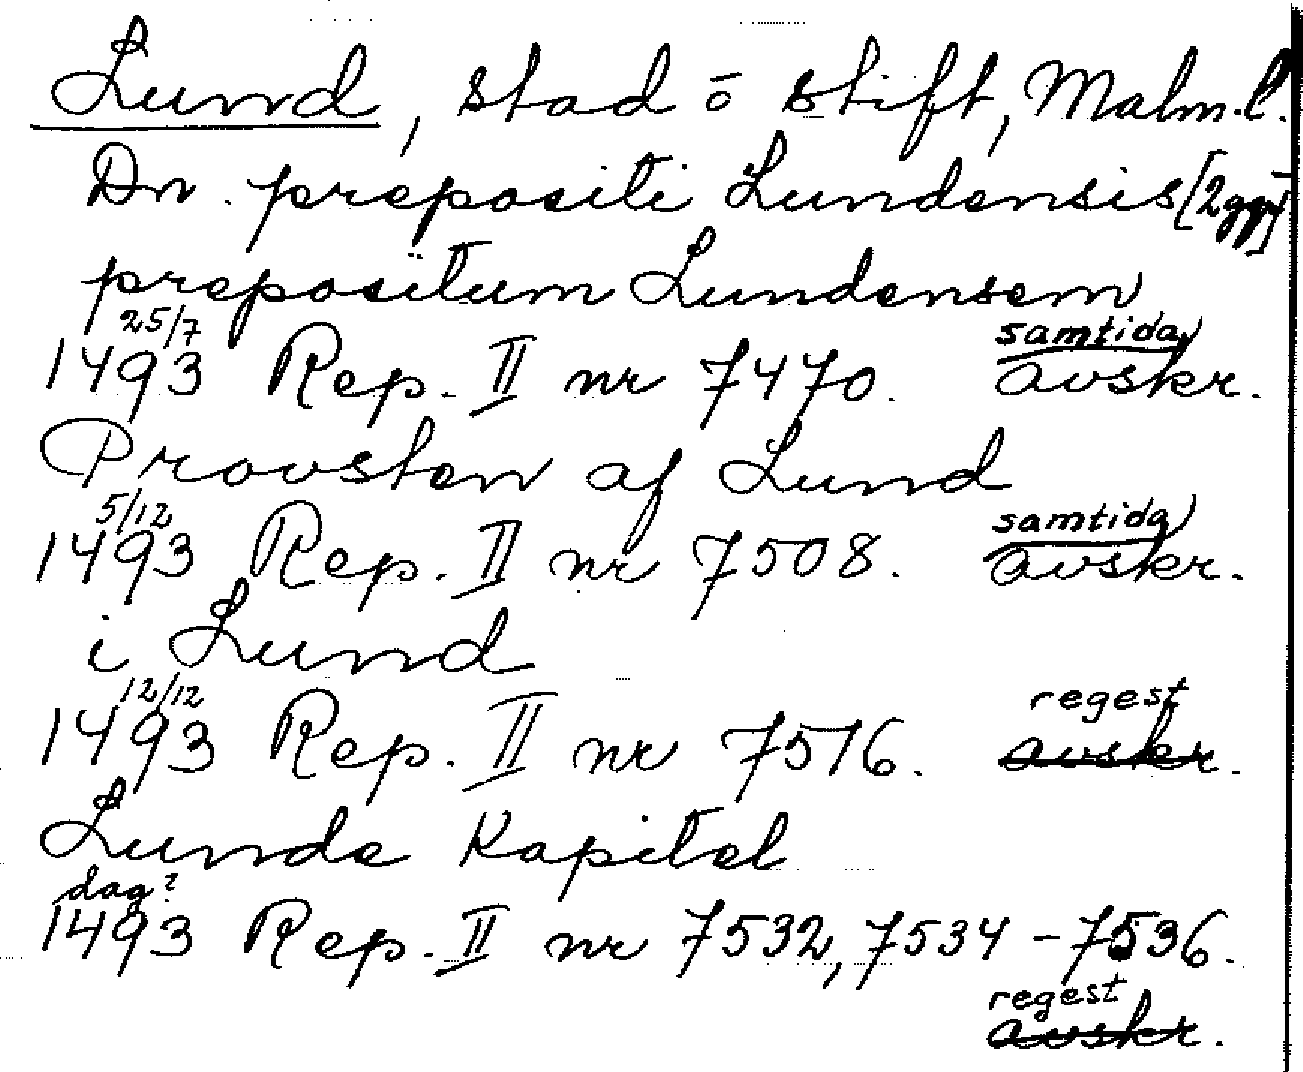 Lund, stad o stift, Malm.l.
Dn. prepositi Lundensis [2ggr]
prepositum Lundensem
25/7 samtida
1493 Rep. II nr 7470. avskr.
Provsten af Lund
5/12 samtida
1493 Rep. II nr 7508. avskr.
i Lund
12/12 regest
1493 Rep. II nr 7516. avskr.
Lunde Kapitel
dag?
1493 Rep. II nr 7532, 7534-7536.
regest
avskr.